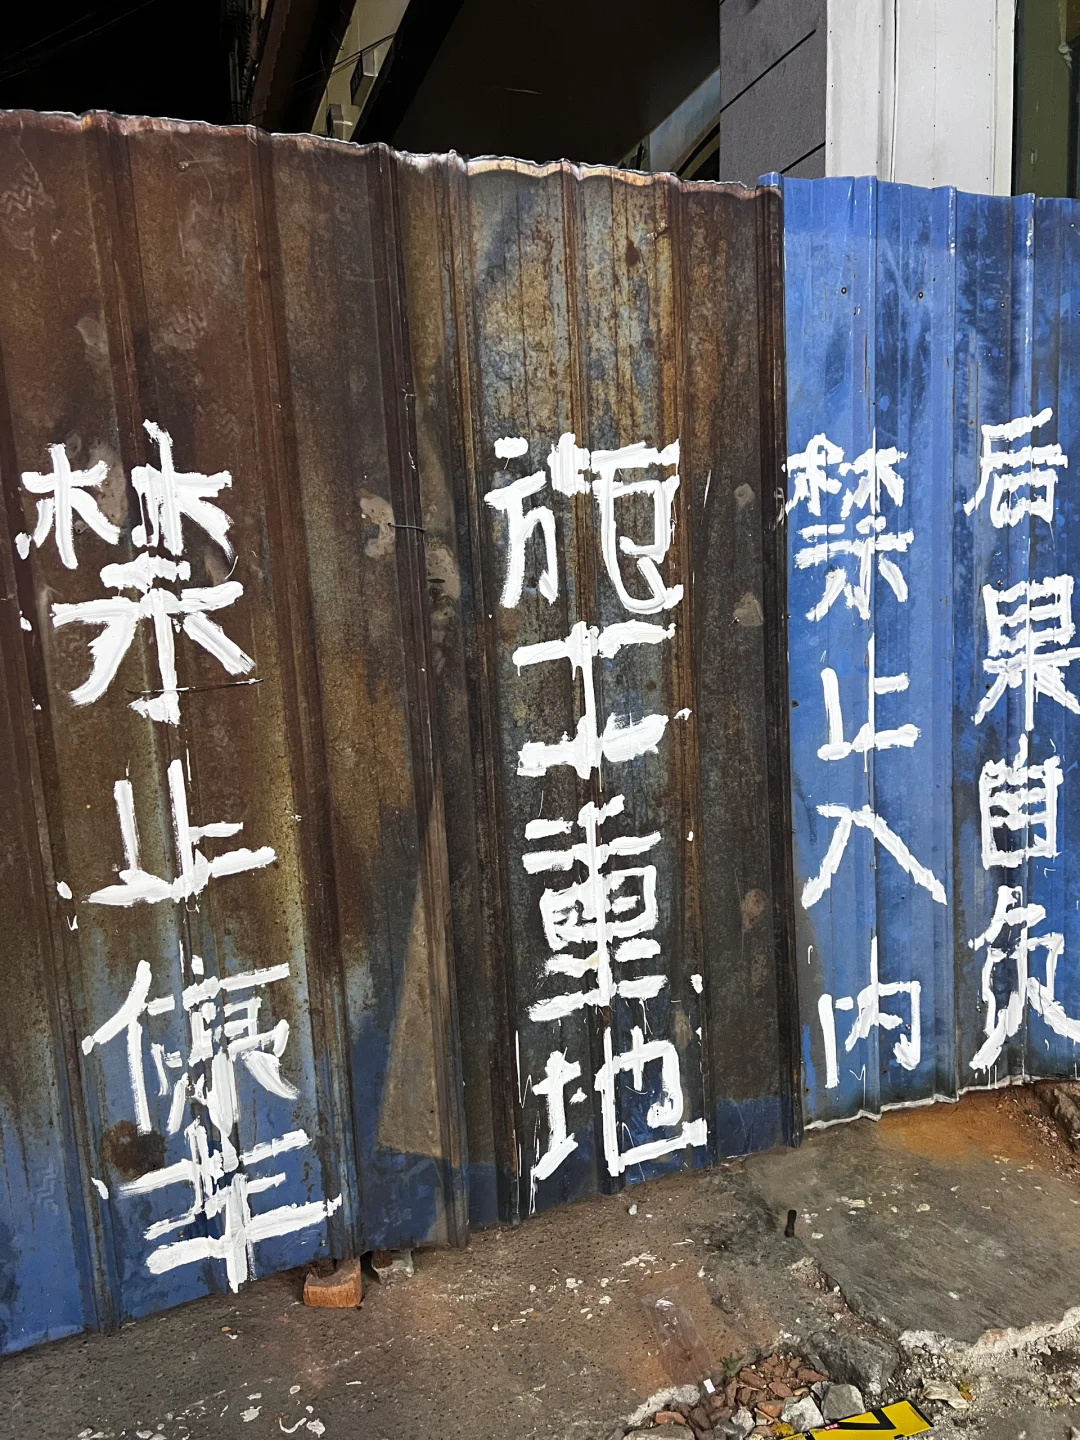 禁止停车
施工重地
禁止入内
后果自负